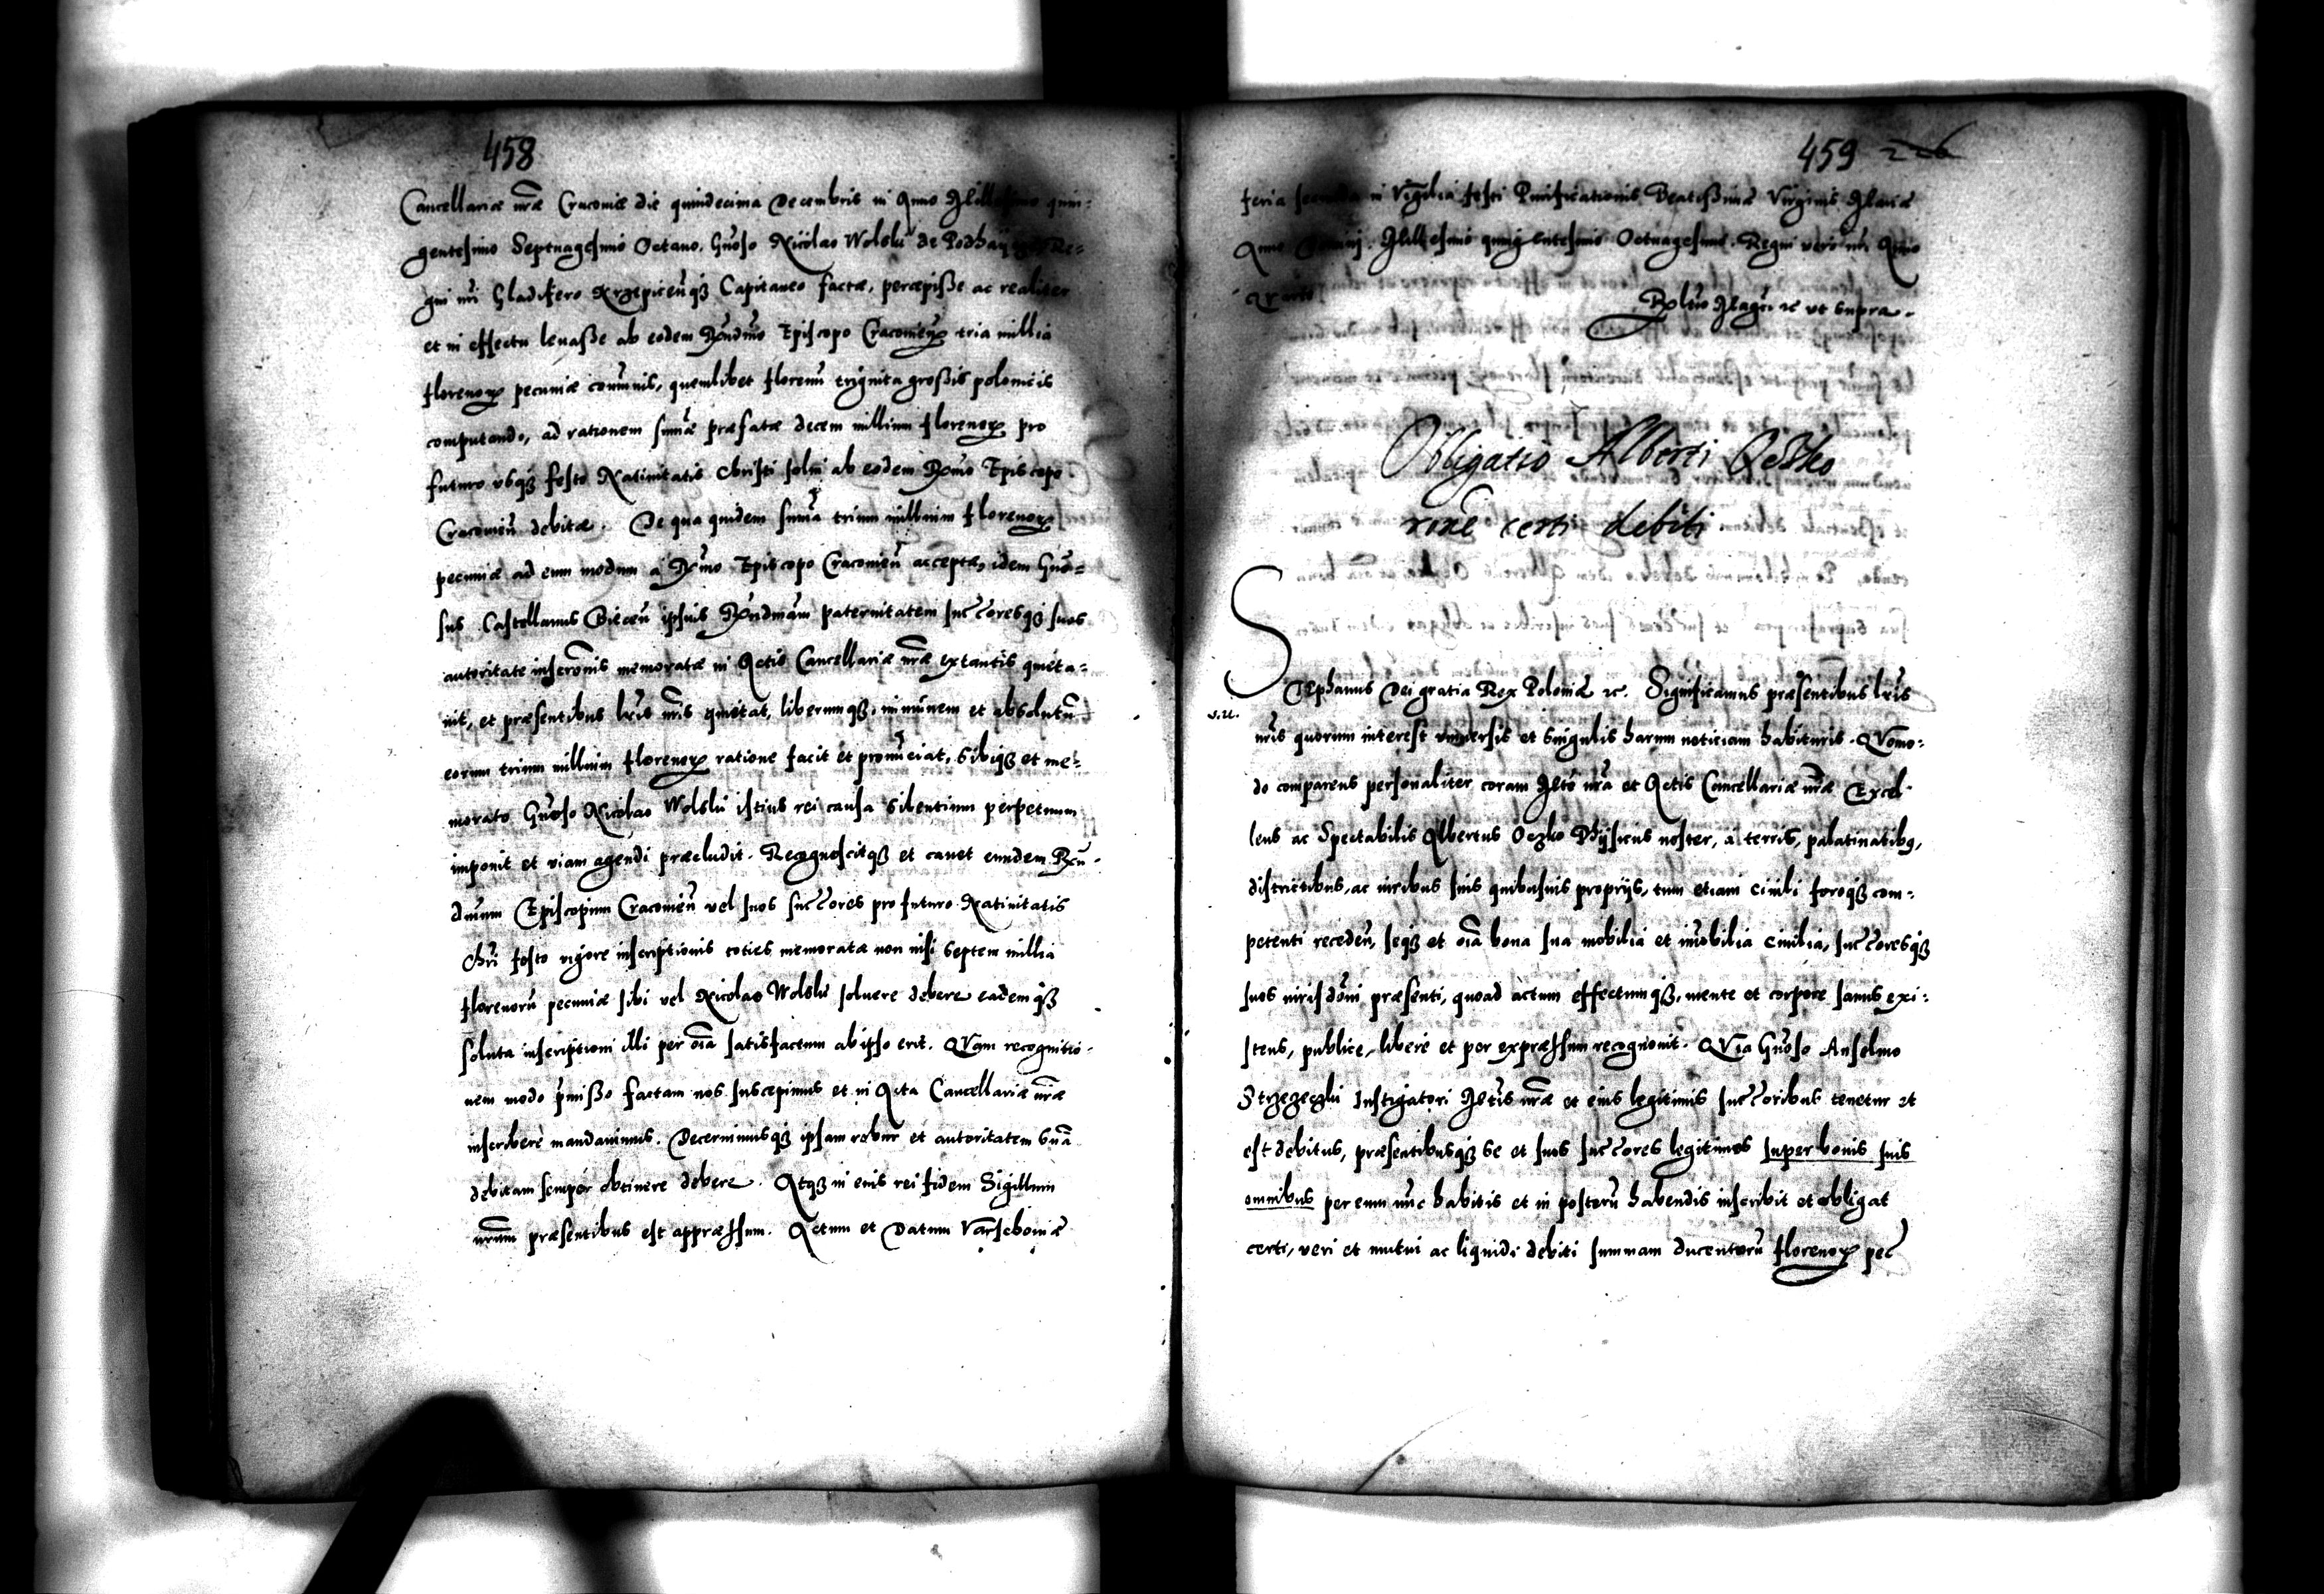 458
Cancellariæ nr̃æ Cracoviæ die quindecima Decembris in Anno Millesimo quin:
gentesimo Septuagesimo Octavo. Gn̄oso Nicolao Wolski de Podhaÿ Re:
gni nr̃i Gladifero Krzepiceñ qʒ Capitaneo factæ, percepisse ac realiter
et in effectu levasse ab eodem Rndmo Episcopo Cracovieñ tria millia
florenorꝝ pecuniæ com̄unis, quemlibet florenū triginta grossis polonicis
computando, ad rationem sum̄æ præfatæ decem millium florenorꝝ pro
futuro usqʒ festo Nativitatis Christi solvi ab eodem Rmo Episcopo
Cracovieñ debitæ. De qua quidem sum̄a trium millium florenorꝝ
pecuniæ ad eum modum a Rmo Episcopo Cracovieñ acceptæ, idem Gn̄o=
sus Castellanus Bieceñ ipsius Rndmam paternitatem succ̄oresqʒ suos
autoritate inscrōnis memoratæ in Actis Cancellariæ nr̃æ extantis quieta=
vit, et præsentibus lr̃is nr̃is quietat, liberumqʒ, im̄unem et absolutū
eorum trium millium florenorꝝ ratione facit et pronūciat, sibiqʒ et me:
morato Gn̄oso Nicolao Wolski istius rei causa silentium perpetuum
imponit et viam agendi præcludit. Recognoscitqʒ et cavet eundem Rn̄
dmum Episcopum Cracovieñ vel suos succ̄ores pro futuro Nativitatis
Chr̃i festo vigore inscriptionis toties memoratæ non nisi septem millia
florenorū pecuniæ sibi vel Nicolao Wolski solvere debere eademqʒ
soluta inscriptioni illi per oīa satisfactum ab ipso erit. Qvam recognitio-
nem modo p̄misso factam nos suscepimus et in Acta Cancellariæ nr̃æ
inscribere mandavimus. Decernimusqʒ ipsam robur et autoritatem suā
debitam semper obtinere debere. Atqʒ in eius rei fidem Sigillum
nr̃um præsentibus est appræssum. Actum et Datum Varschoviæ
459 226
feria secunda in Vigilia festi Purificationis Beatissimæ Virginis Mariæ
Anno Domini Millesimo quingentesimo Octuagesimo. Regni vero nr̃i Anno
Quarto
Rel̃tio Magci ꝛc ut supra.
Obligatio Alberti Oczko
rõne certi debiti
STephanus Dei gratia Rex Poloniæ ꝛc. Significamus præsentibus lr̃is
nr̃is quorum interest universis et singulis harum noticiam habituris. Qvomo:
do comparens personaliter coram Mtẽ nr̃a et Actis Cancellariæ nr̃æ Excel-
lens ac Spectabilis Albertus Oczko Phÿsicus noster, a terris, palatinatibꝫ,
districtibus, ac iuribus suis quibusvis proprijs, tum etiam civili foroqʒ com:
petenti recedeñ, seqʒ et oīa bona sua mobilia et im̄obilia civilia, succ̄oresqʒ
suos iurisdōni præsenti, quoad actum effectumqʒ, mente et corpore sanus exi:
stens, publice, libere et per expræssum recognovit. Qvia Gn̄oso Anselmo
Strzezezki Instigatori Mtis nr̃æ et eius legitimis succ̄oribus tenetur et
est debitus, præsentibusqʒ se et suos succ̄ores legitimos super bonis suis
omnibus per eum nūc habitis et in posterū habendis inscribit et obligat
certi, veri et mutui ac liquidi debiti summam ducentorū florenorꝝ pec̄